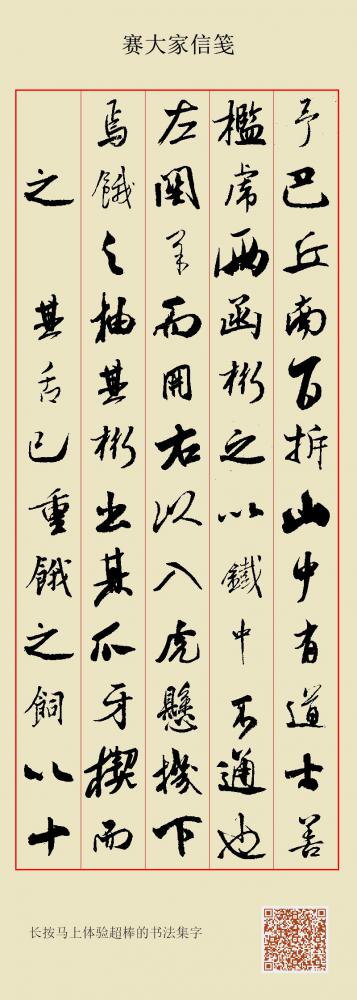 赛大家信笺
予巴丘南百折山中有道士善
檻虎兩函桁之以鐵中不通也
左關羊而開右以入虎懸機下
焉餓之抽其桁出其爪牙楔而
之 其舌已重餓之飼以十
长按马上体验超棒的书法集字